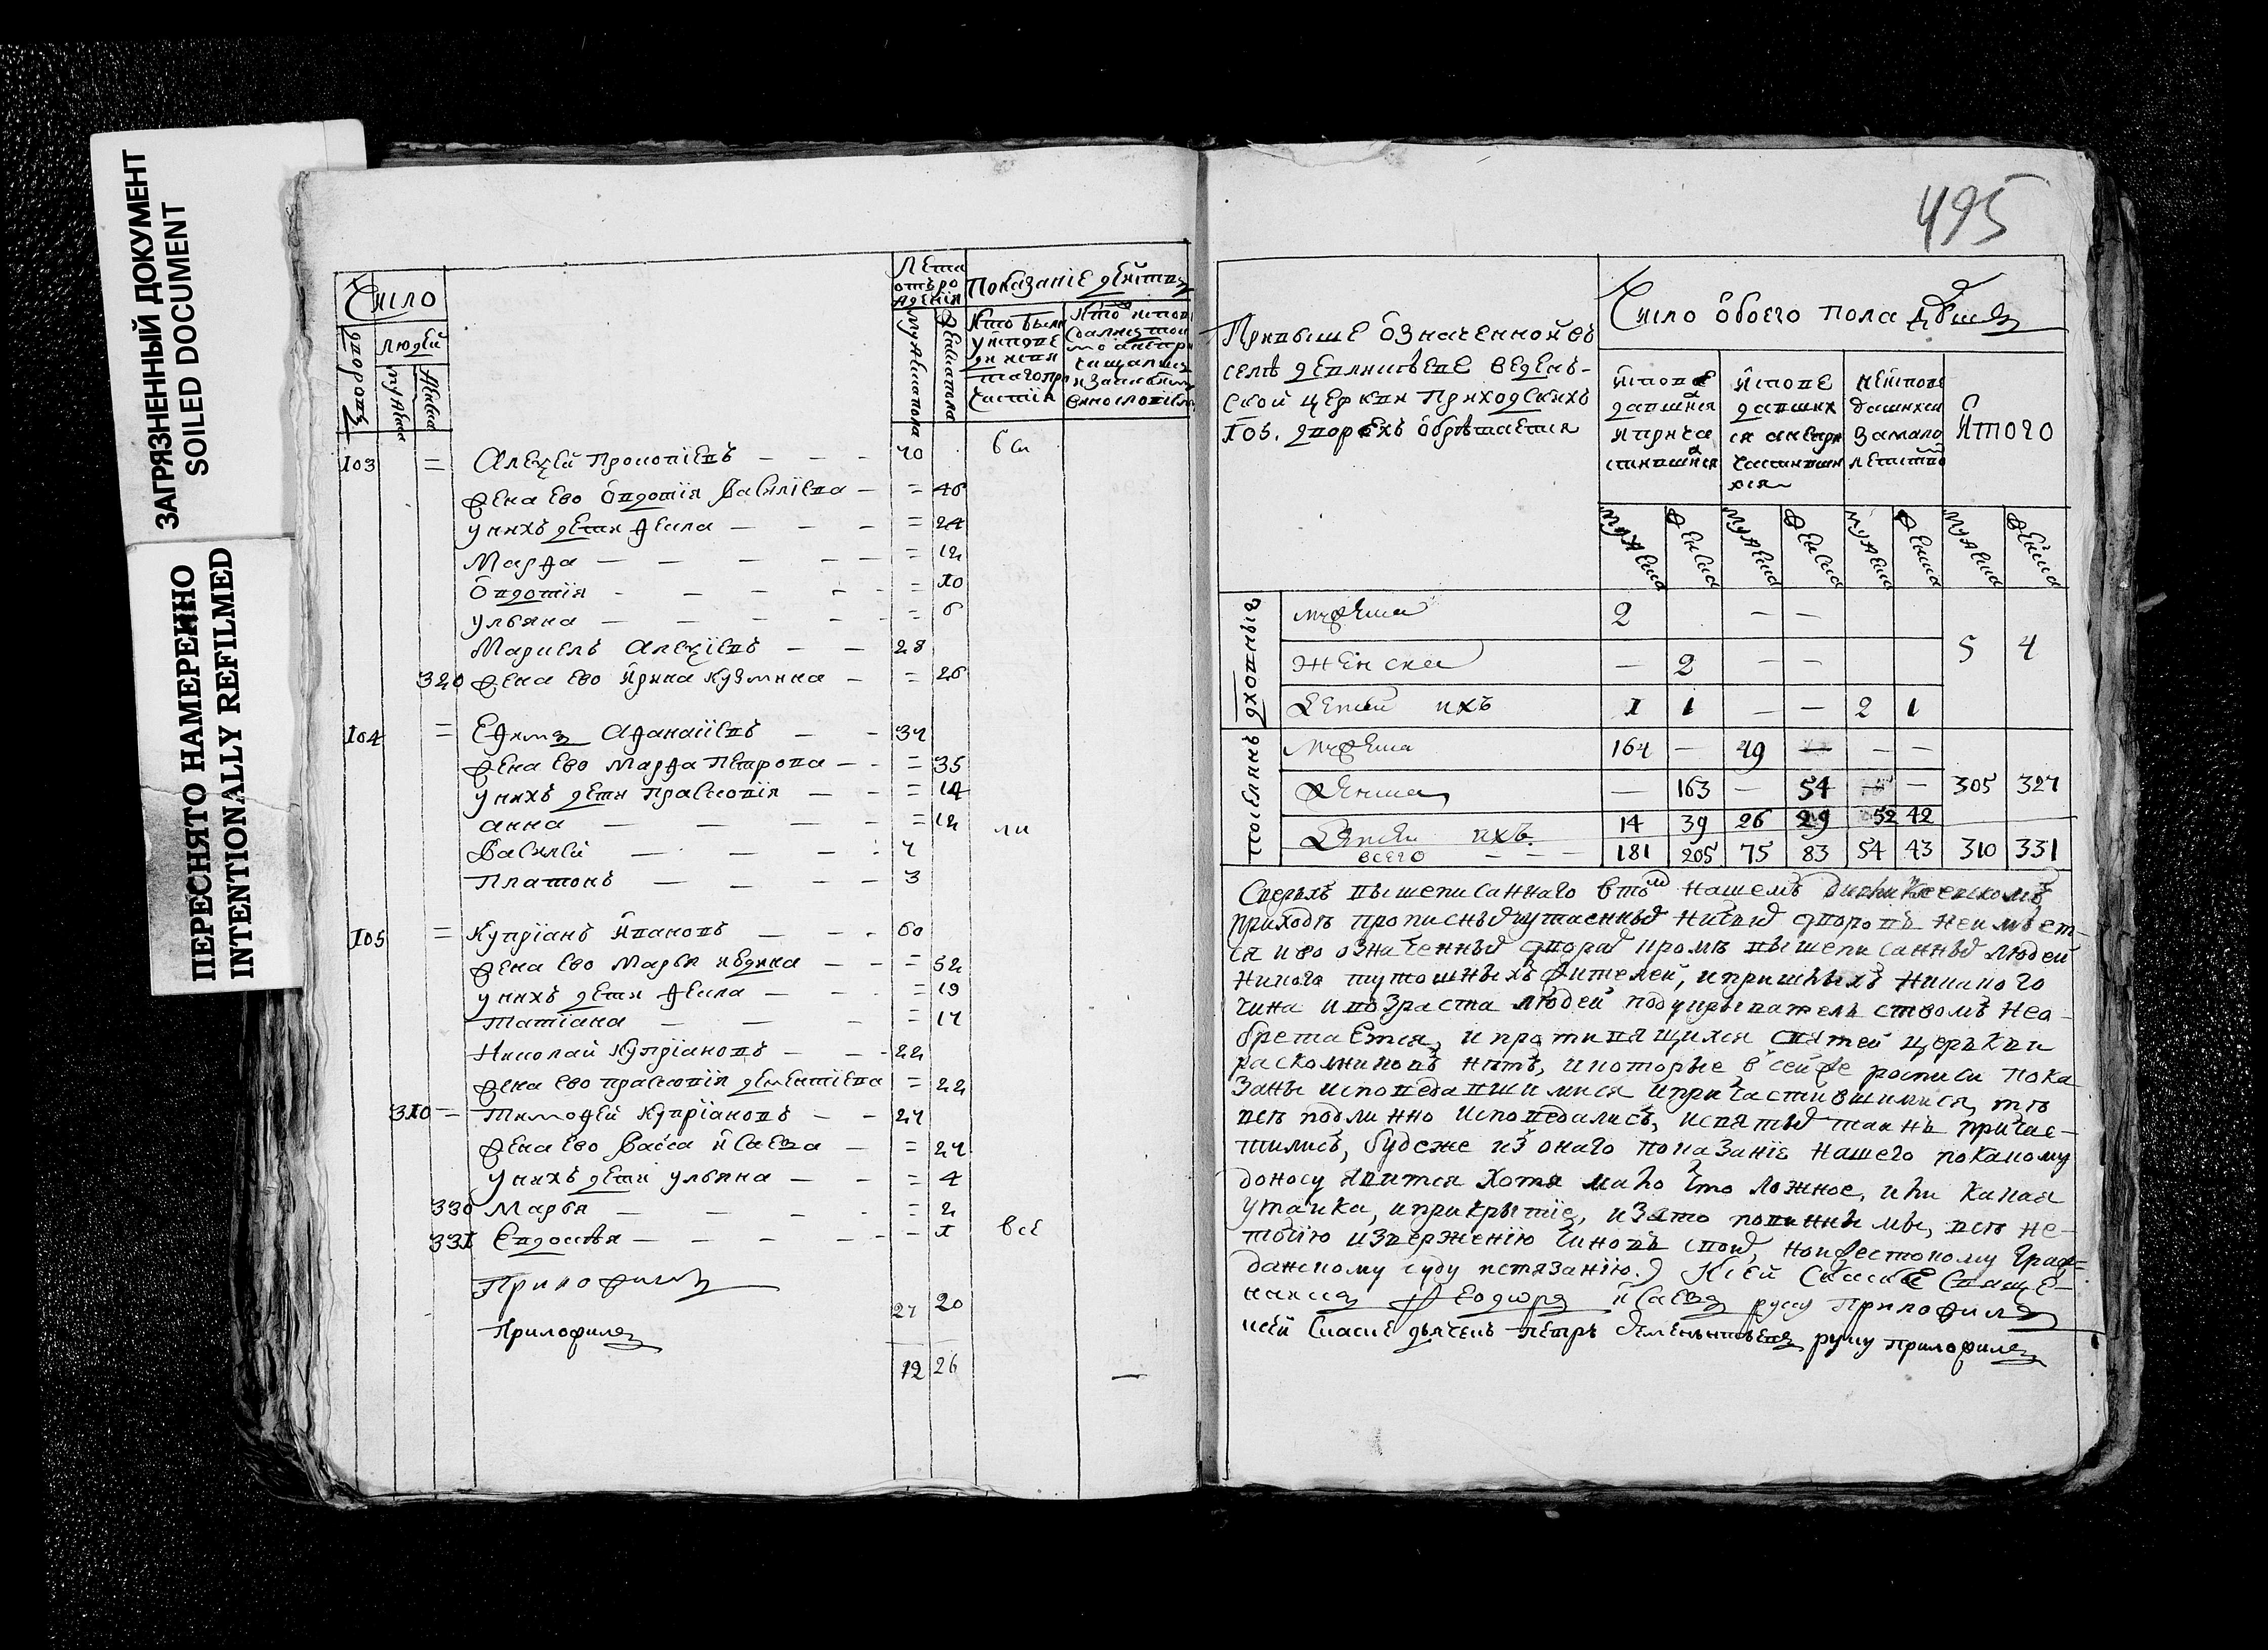 ЗАГРЯЗНЕННЫЙ ДОКУМЕНТ
SOILED DOCUMENT
ПЕРЕСНЯТО НАМЕРЕННО
INTENTIONALLY REFILMED
Число
дворовъ
людей
мужеска
женска
Лета отъ рождения
мужеска пола
женска пола
Показание действъ
103 = Алексей Прокопиевъ — — — 40 вси
жена ево Овдотия Василиева — = 46
у нихъ дети Фекла — — — = 24
Марфа — — — — — = 12
Овдотия — — — — = 10
Ульяна — — — — — = 6
Маркелъ Алексиевъ — — 28
320 жена ево Ирина Кузмина — = 26
104 = Ефимъ Афанасиевъ — — 34
жена ево Марфа Петрова — — = 35
у нихъ дети Прасковия — — = 14
Анна — — — — = 12 ли
Василей — — — — 4
Платонъ — — — — 3
105 = Куприанъ Ивановъ — — — 60
жена ево Марья — — = 52
у нихъ дети Фекла — — — = 19
Татиана — — — = 14
Николай Куприановъ — — — 22
жена ево Прасковия Дементиева = 22
310 = Тимофей Куприановъ — — 24
жена ево Васса Исаева — = 24
у нихъ дети Ульяна — — = 4
330 Марья — — — — = 2
331 Евдокия — — — — — 1 все
Приложилъ
24 20
Приложилъ
12 26
495
При выше означенной въ
селе церкви приходскихъ
105. дворехъ обретается
Число обоего пола душъ
исповедавшися и причастившися
исповедавшихся а не причастившихся
не исповедавшихся за малолетствомъ
Итого
мужеска женска мужеска женска мужеска женска мужеска женска
духовныя
мужеска 2 — —
5 4
женска — 2 — —
Детей ихъ 1 1 — — 2 1
поселянъ
мужеска 164 — 49 — — —
женска — 163 — 54 — — 305 327
Детей ихъ 14 39 26 29 52 42
всего — — — 181 205 75 83 54 43 310 331
Сверхъ вышеписаннаго в томъ нашемъ
приходе прописныхъ утаенныхъ никакихъ дворовъ не имеет-
ся и во означенныхъ дворах кроме вышеписанныхъ людей
никого тутошныхъ жителей, и пришлыхъ никакого
чина и возраста людей под укрывательствомъ не о-
бретается, и противящихся святей церкви
расколниковъ нетъ, и которые в сей же росписи пока
заны исповедавшимися и причастившимися, те
все подлинно исповедались, и святыхъ таинъ причас-
тились, буде же из онаго показания нашего по каному
доносу явится хотя мало что ложное, или какая
утайка, и прикрытие, и за то повинны мы, все не-
тоию извержению чиновъ своихъ, но и жестокому граж-
данскому суду истязанию. К сей скаске священ-
никъ Феодоръ Исаевъ руку приложилъ
к сей скаске дьячекъ Петръ Дементиевъ руку приложилъ